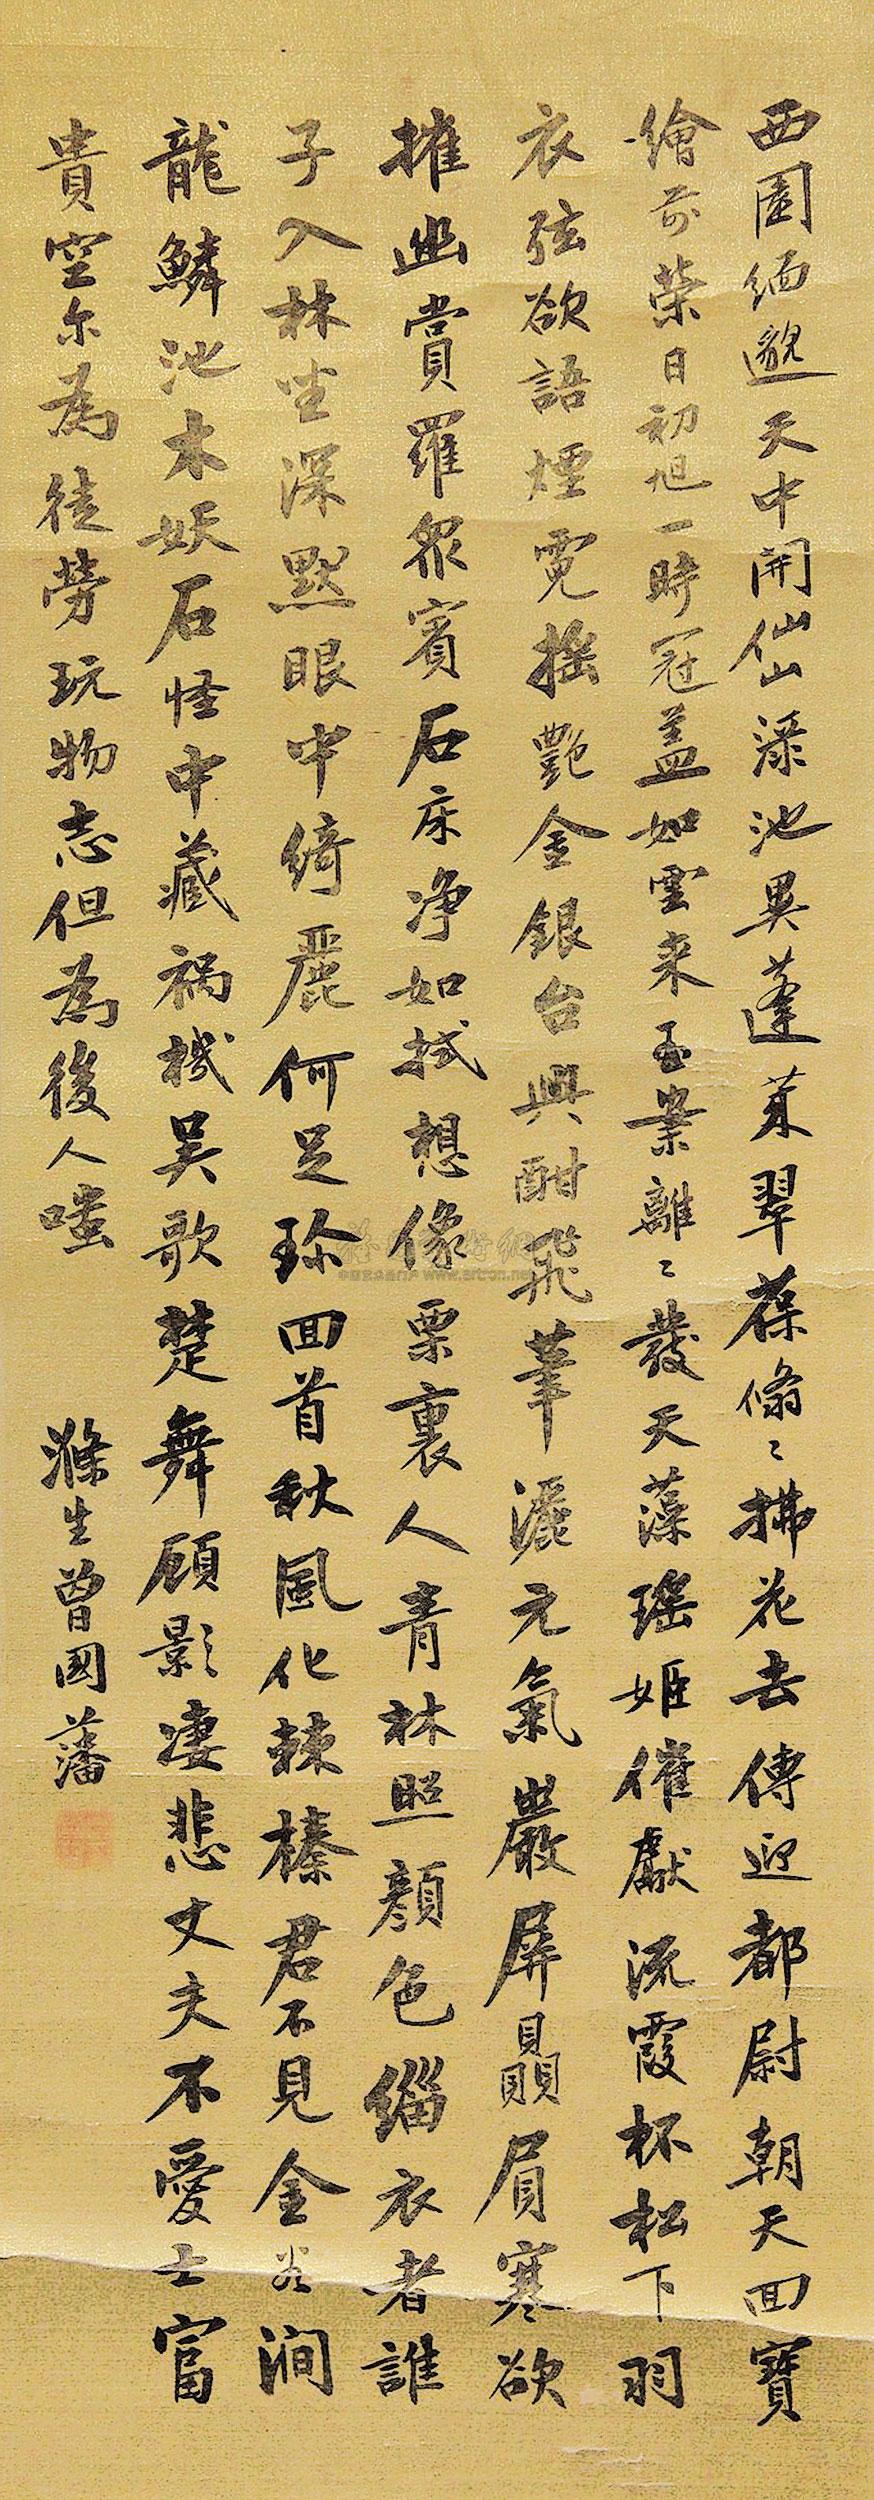 西園緬邈天中開仙山漾池異蓬萊翠葆翛〻拂花去傳迎都尉朝天回寶
繪前榮日初旭一時冠盖如雲来玉業離〻發天藻瑤姬催獻流霞杯松下羽
衣弦欲語煙霓搖艷金銀台興酣飛筆灑元氣巖屏贔屓寒欲
摧幽賞羅眾賓石床净如拭想像栗裏人青林照顏色緇衣者誰
子入林坐深默眼中綺麗何足珎回首秋風化棘榛君不見金谷澗
龍鱗池木妖石怪中藏禍機吴歌楚舞顧影凄悲丈夫不愛士富
貴空尔為徒勞玩物志但為後人嗤
滌生曾國藩